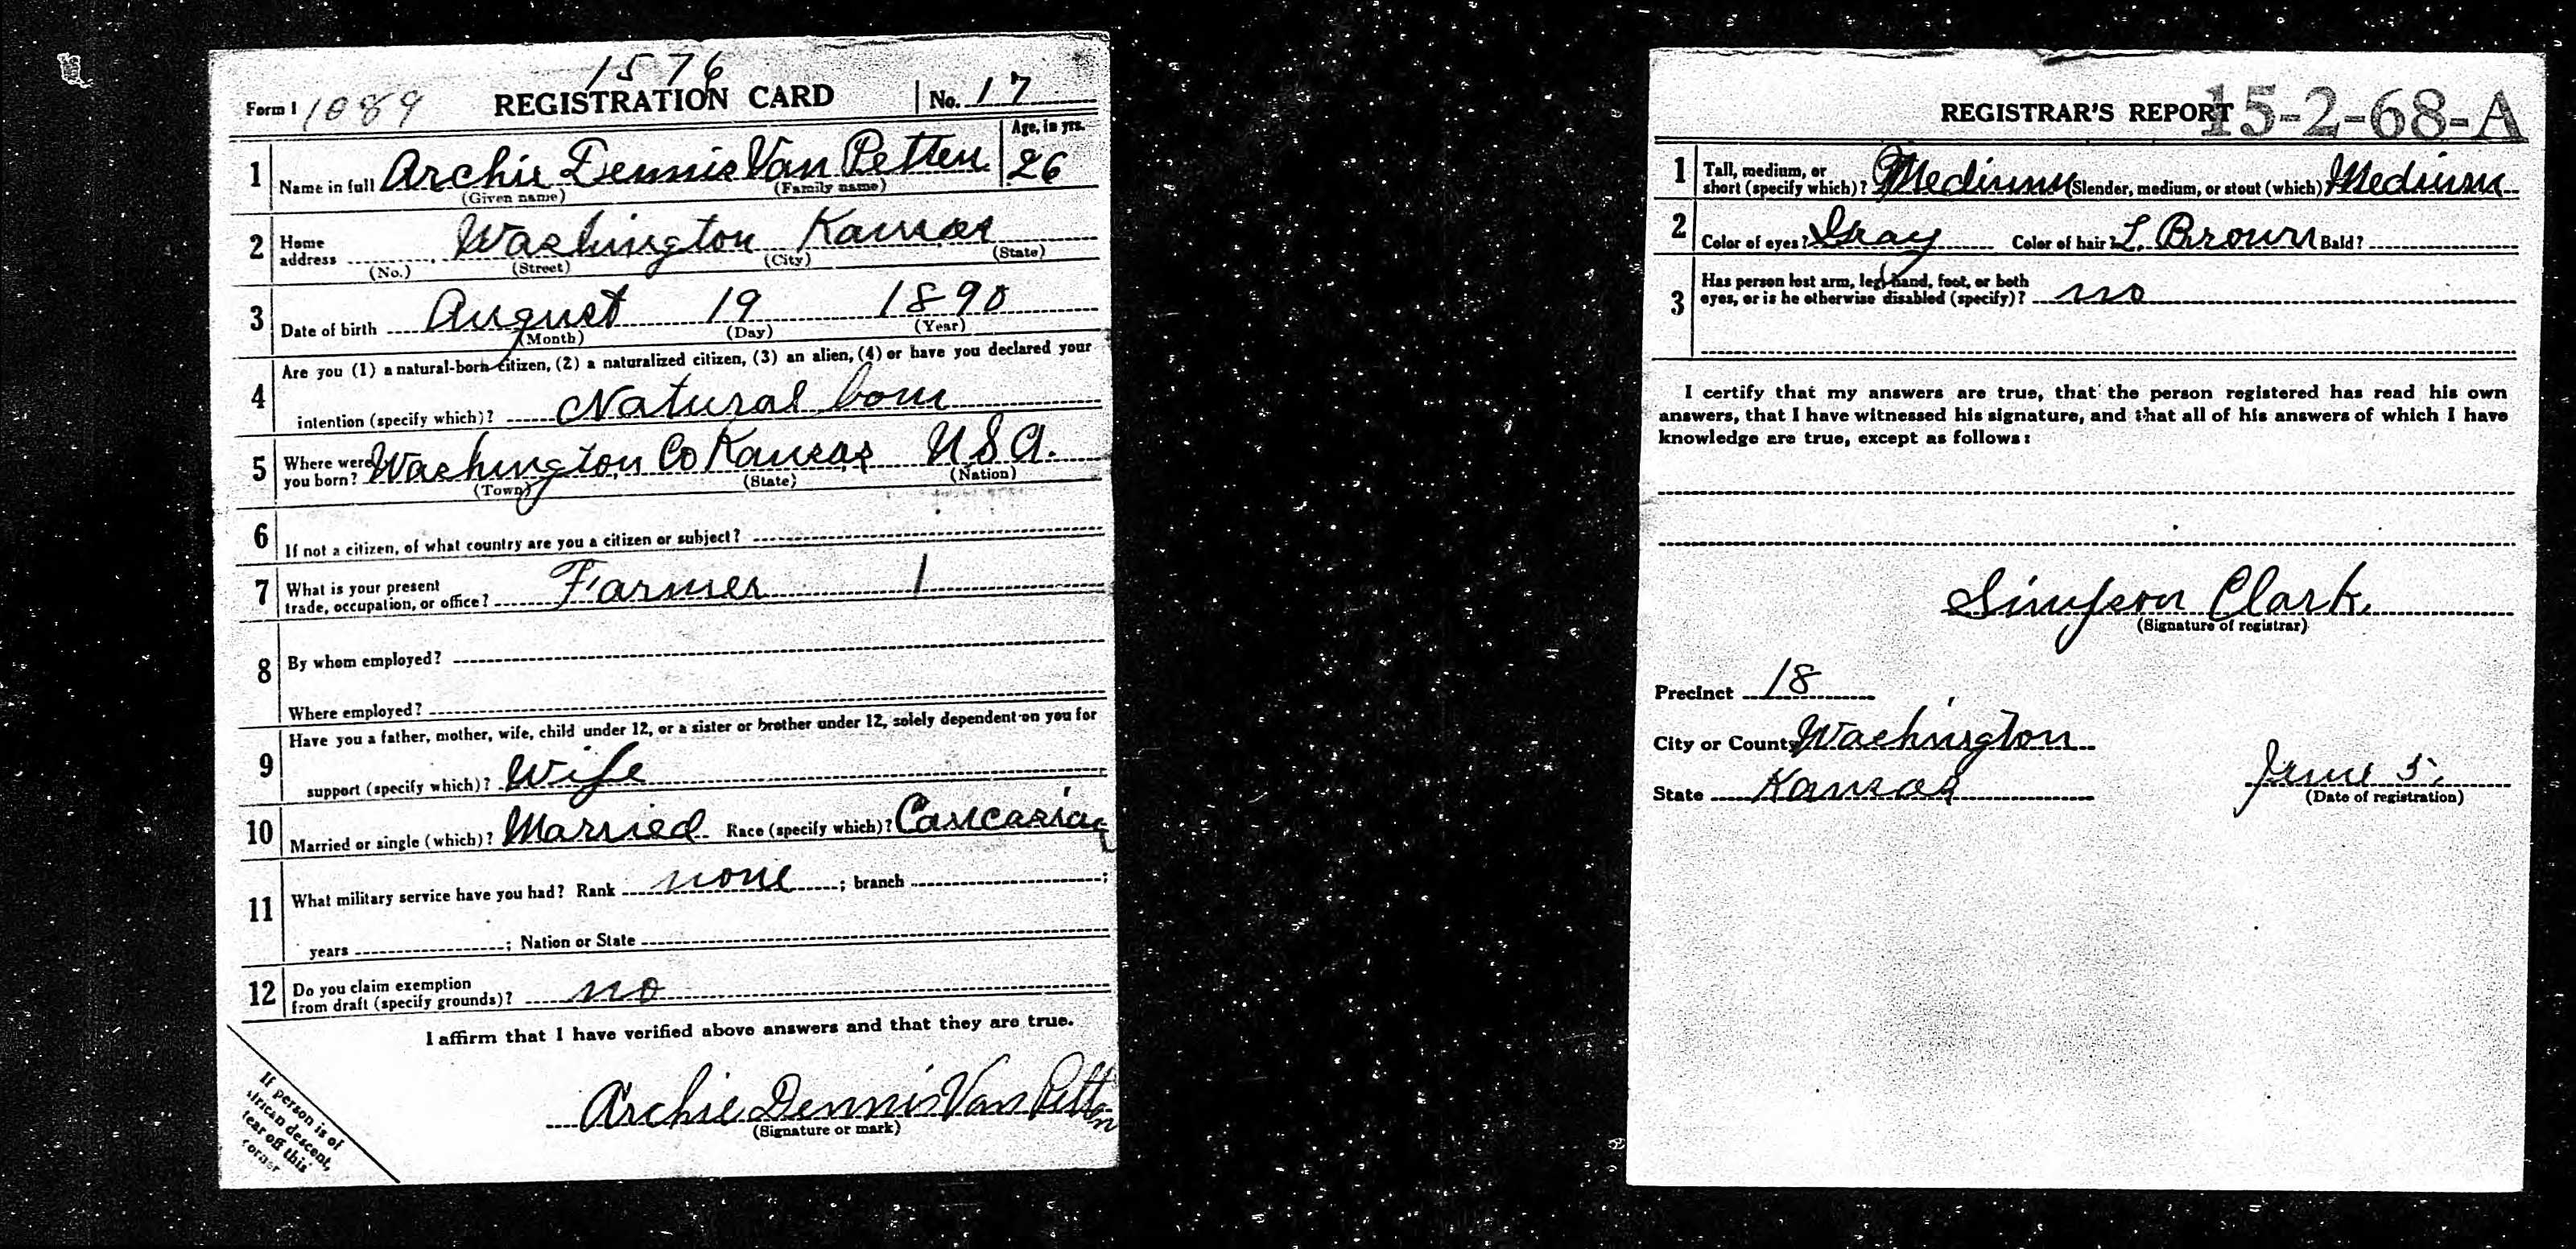 1576
Form 1 1089 REGISTRATION CARD No. 17
1 Name in full Archie Dennis Van Petten Age, in yrs. 26
(Given name) (Family name)
2 Home address Washington Kansas
(No.) (Street) (City) (State)
3 Date of birth August 19 1890
(Month) (Day) (Year)
4 Are you (1) a natural-born citizen, (2) a naturalized citizen, (3) an alien, (4) or have you declared your
intention (specify which)? Natural born
5 Where were you born? Washington Co Kansas U S A.
(Town) (State) (Nation)
6 If not a citizen, of what country are you a citizen or subject?
7 What is your present trade, occupation, or office? Farmer 1
8 By whom employed?
Where employed?
9 Have you a father, mother, wife, child under 12, or a sister or brother under 12, solely dependent on you for
support (specify which)? Wife
10 Married or single (which)? Married Race (specify which)? Caucasian
11 What military service have you had? Rank none ; branch ;
years ; Nation or State
12 Do you claim exemption from draft (specify grounds)? no
I affirm that I have verified above answers and that they are true.
Archie Dennis Van Petten
(Signature or mark)
If person is of
African descent,
tear off this
corner
REGISTRAR'S REPORT 15-2-68-A
1 Tall, medium, or short (specify which)? Medium Slender, medium, or stout (which) Medium
2 Color of eyes? Gray Color of hair? L. Brown Bald?
3 Has person lost arm, leg, hand, foot, or both
eyes, or is he otherwise disabled (specify)? no
I certify that my answers are true, that the person registered has read his own
answers, that I have witnessed his signature, and that all of his answers of which I have
knowledge are true, except as follows:
Simpson Clark
(Signature of registrar)
Precinct 18
City or County Washington
State Kansas June 5.
(Date of registration)